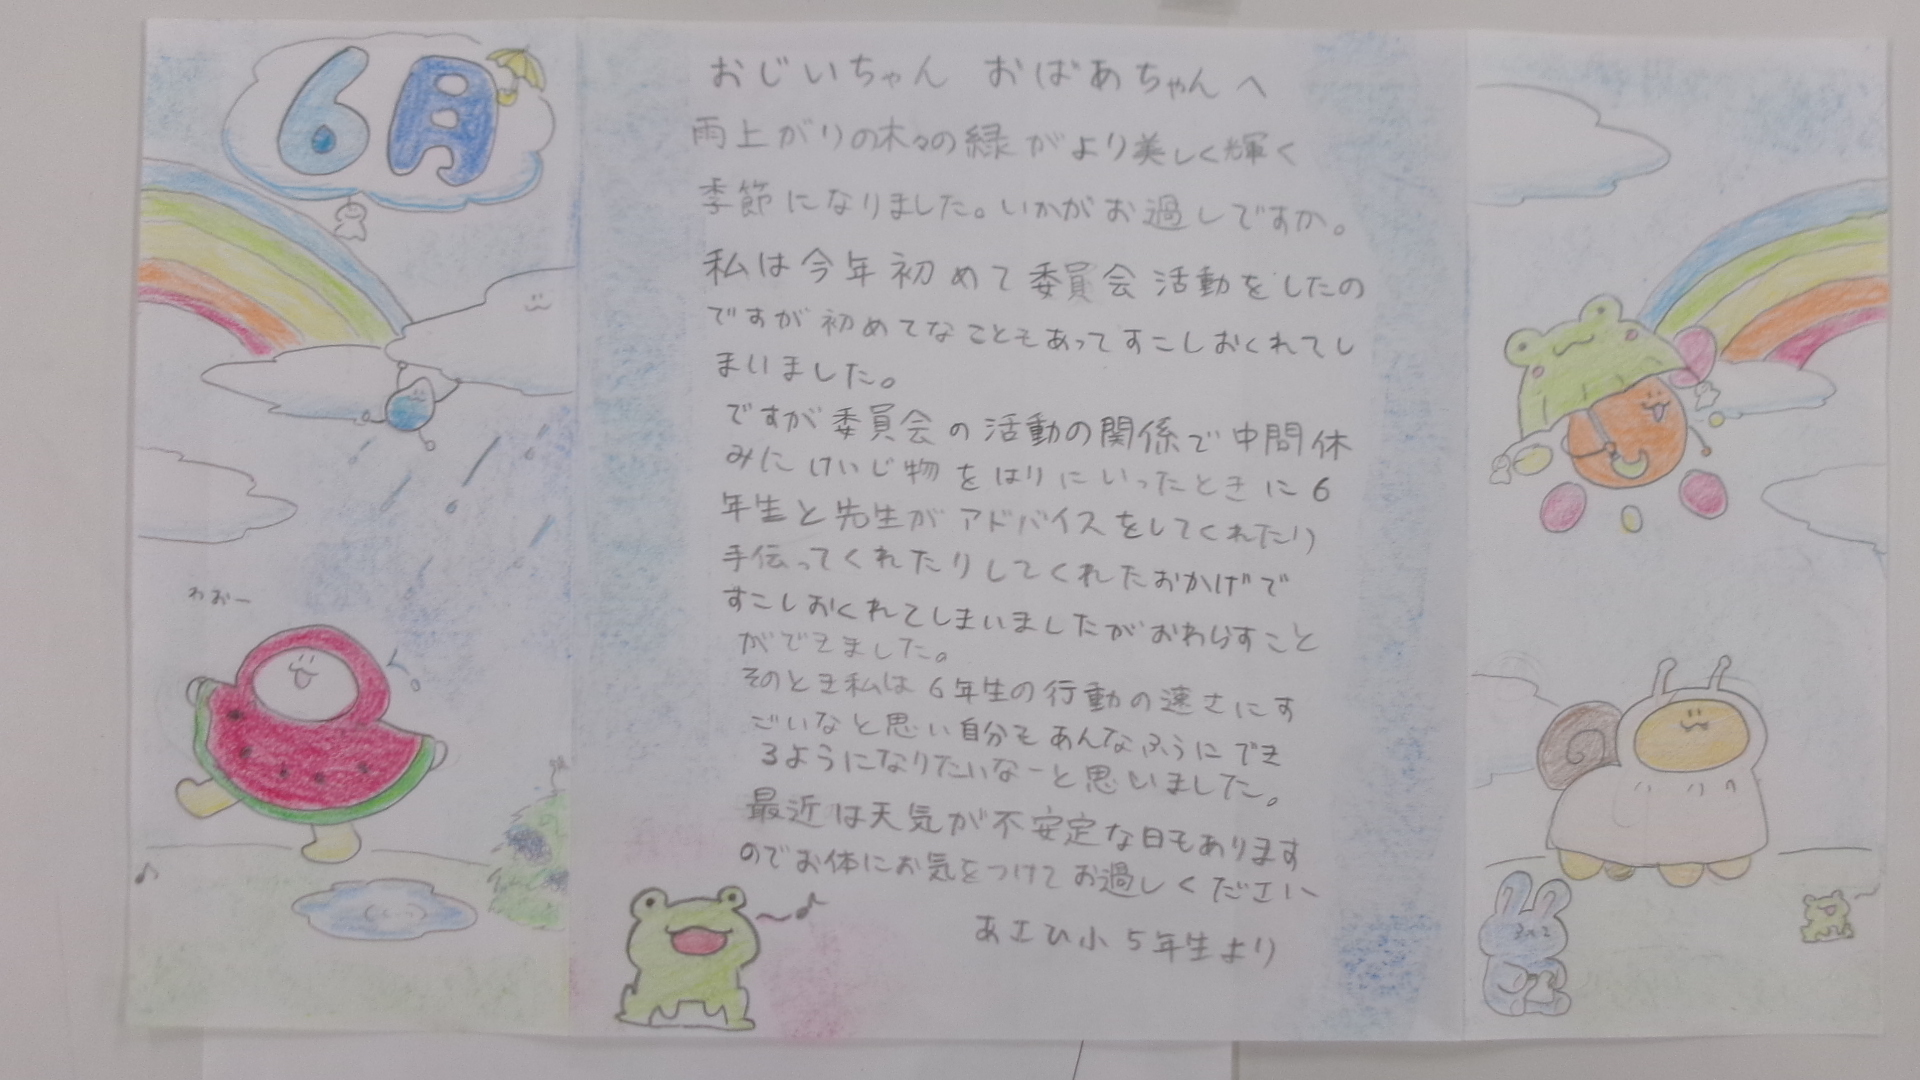 6月
おじいちゃん おばあちゃんへ
雨上がりの木々の緑がより美しく輝く
季節になりました。いかがお過しですか。
私は今年初めて委員会活動をしたの
ですが初めてなこともあってすこしおくれてし
まいました。
ですが委員会の活動の関係で中間休
みにけいじ物をはりにいったときに6
年生と先生がアドバイスをしてくれたり
手伝ってくれたりしてくれたおかげで
すこしおくれてしまいましたがおわらすこと
ができました。
そのとき私は6年生の行動の速さにす
ごいなと思い自分もあんなふうにでき
るようになりたいなーと思いました。
最近は天気が不安定な日もあります
のでお体にお気をつけてお過しください
あさひ小5年生より
わおー